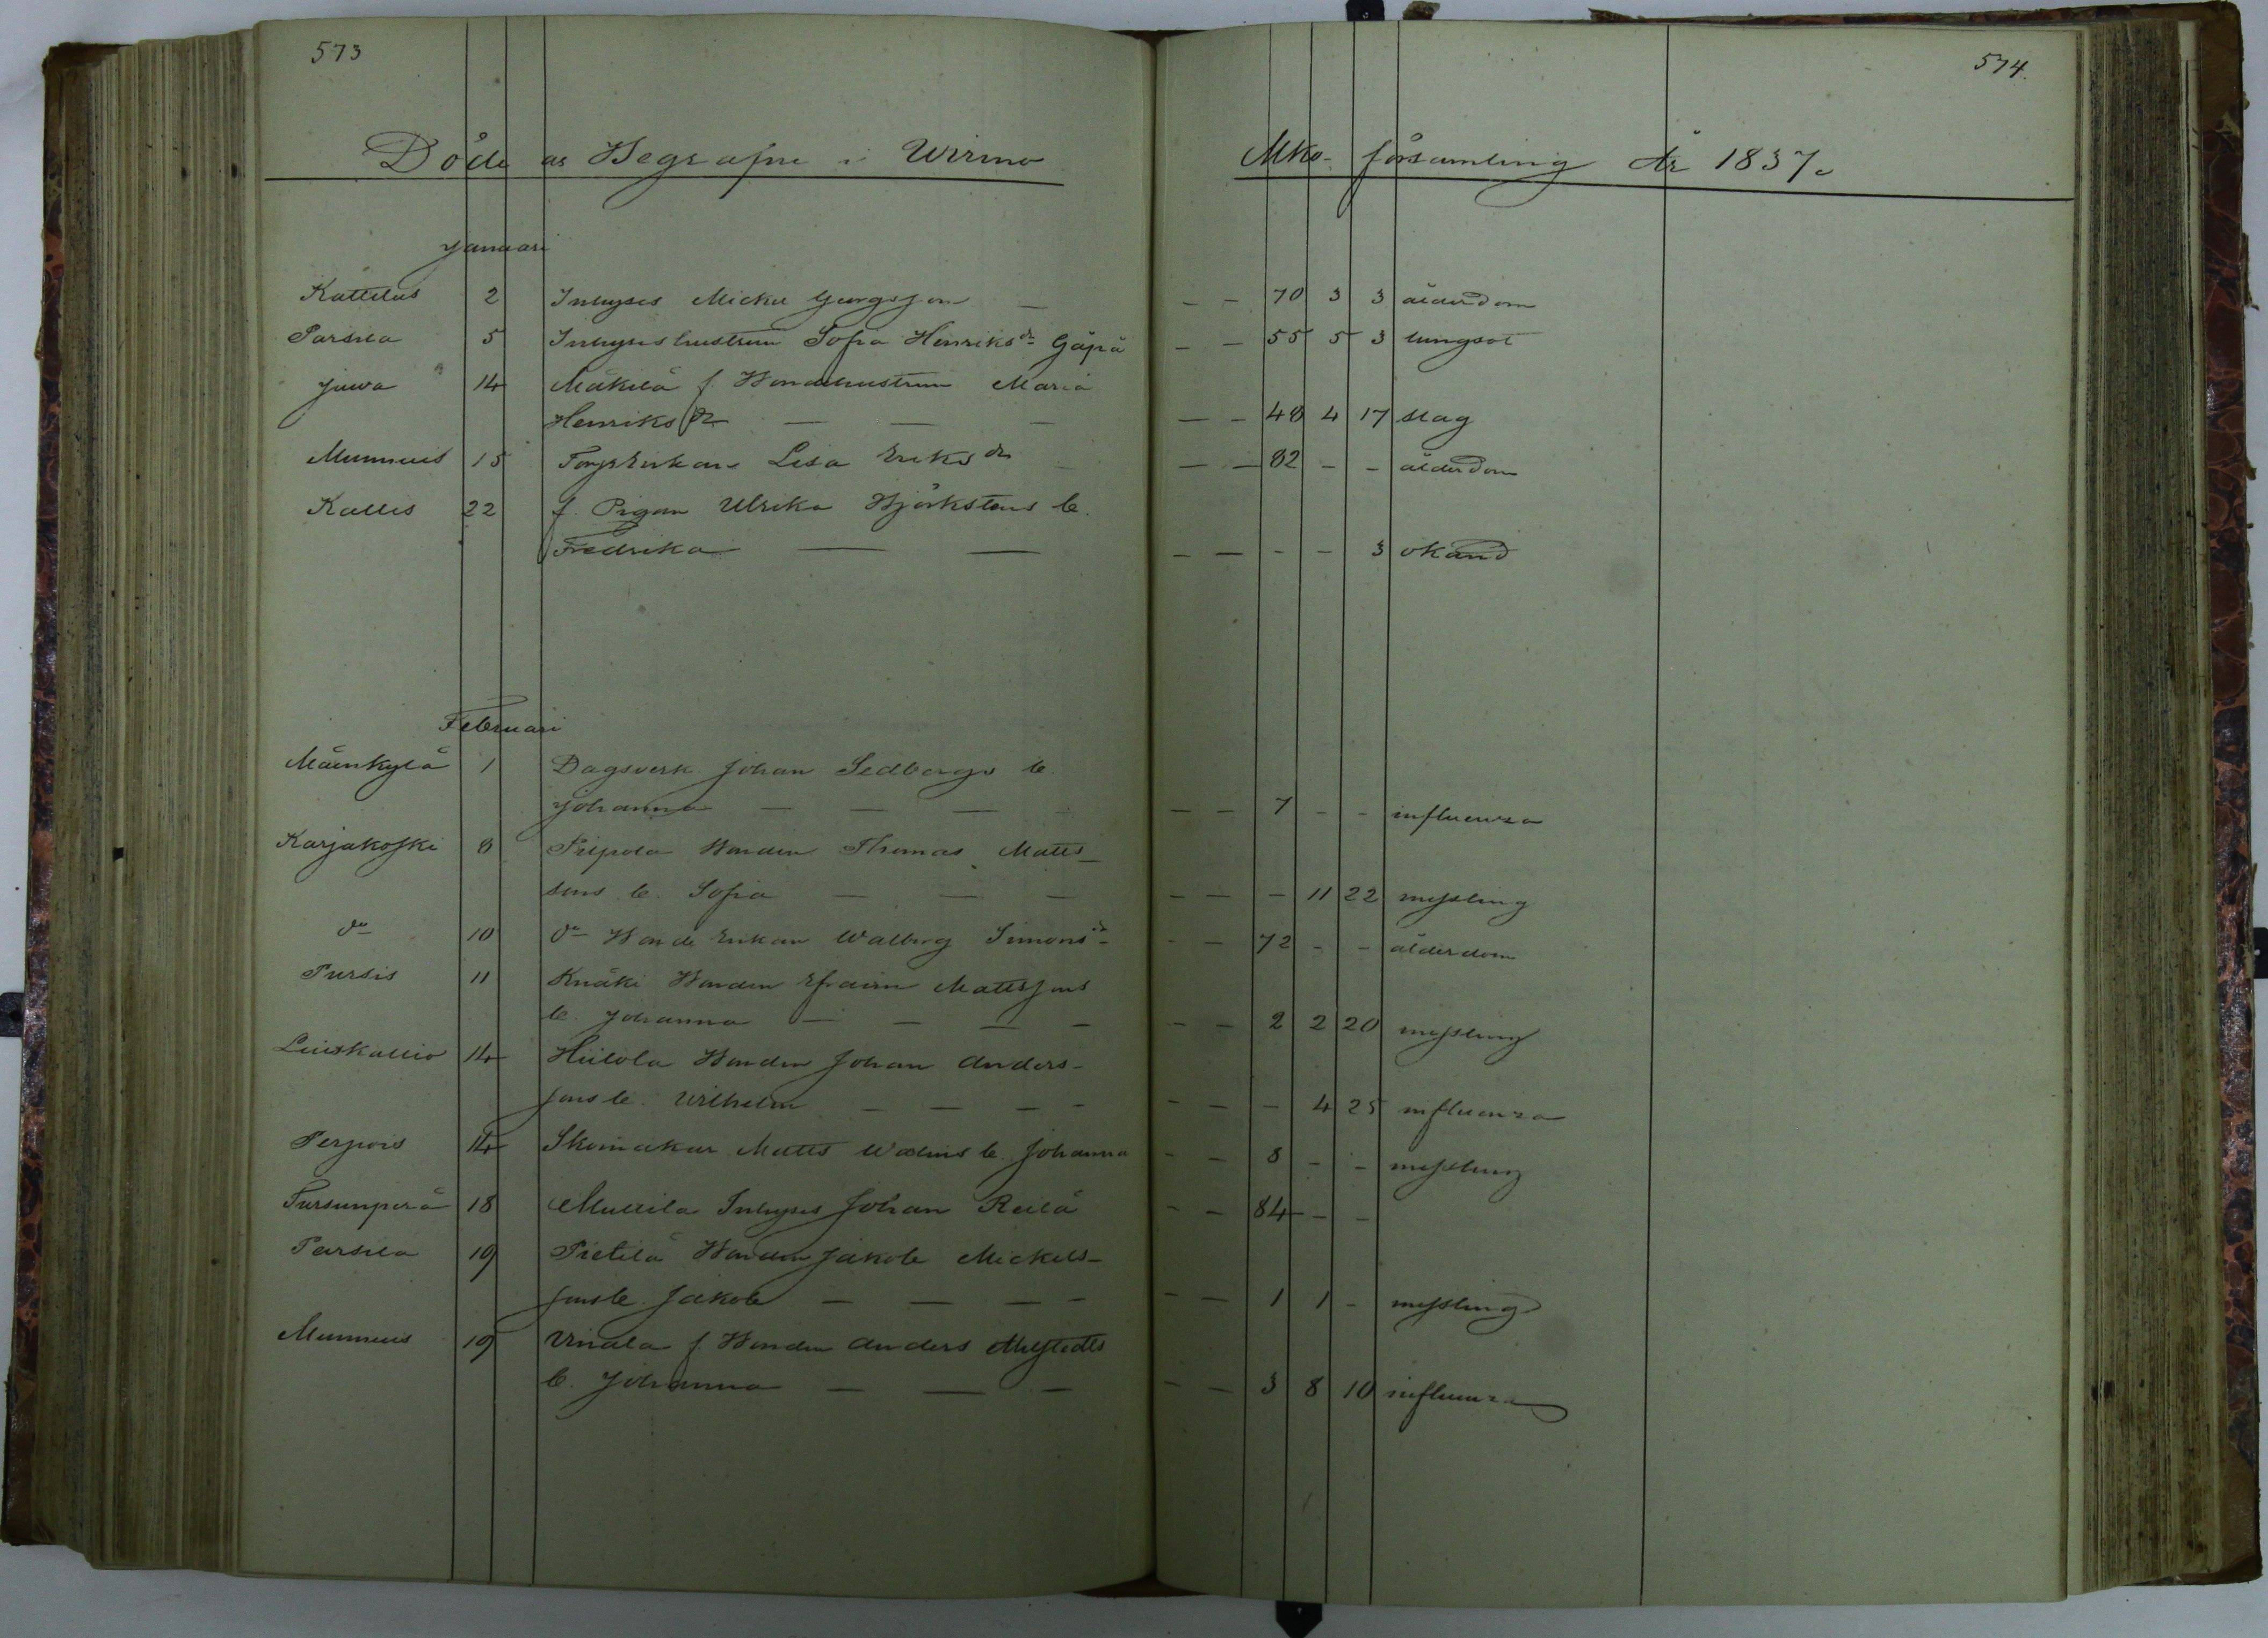 573
574.
Döde as Begrafne i Wirmo Mko- församling År 1837.
Januari
Kattelus 2 Inhyses Mickel Georgsson — — — 70 3 3 ålderdom
Parsila 5 Inhyseshustrun Sofia Henriksdr Gäpä — — 55 5 3 lungsot
Juva 14 Mäkilä f. Bondehustrun Maria
Henriksdr — — — — — 48 4 17 slag
Munnuis 15 Lisa Eriksdr — — — 82 - - ålderdom
Kallis 22 f. Pigan Ulrika Björkstens b.
Fredrika — — — — - - 3 okänd
Februari
Mäenkylä 1 Dagsverk. Johan Sedbergs b.
Johanna — — — — — 7 - - influenza
Karjakoski 8 Piipola Bonden Thomas Matts-
sons b. Sofia — — — — — - 11 22 messling
do 10 do Bonde Enkan Walborg Simonsdr - — — 72 - - ålderdom
Pursis 11 Knäki Bonden Efraim Mattssons
b. Johanna — — — — — — 2 2 20 messling
Leiskallio 14 Hiilola Bonden Johan Anders-
sons b. Wilhelm — — — — — — - 4 25 influenza
Perjois 14 Skomakar Matts b. Johanna — — 8 - - messling
Tursunperä 18 Mullila Inhyses Johan Reilä — — 84 - -
Parsila 19 Pietilä Bonden Jakob Mickels-
sons b. Jakob — — — — — — 1 1 - messling
Munnuis 19 f. Bonden Anders
b. Johanna — — — — — 3 8 10 influenza